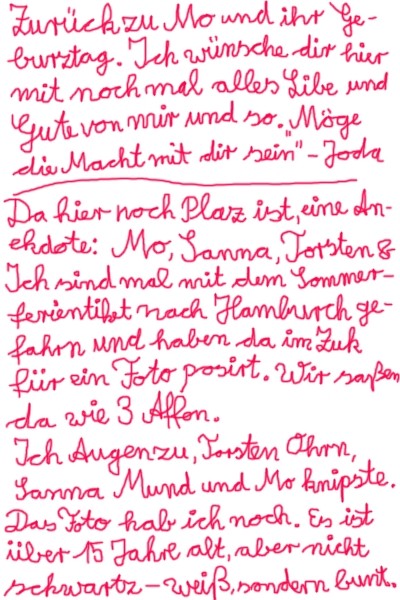 Zurück zu Mo und ihr Ge-
burztag. Ich wünsche dir hier
mit noch mal alles Libe und
Gute von mir und so. "Möge
die Macht mit dir sein" - Joda
Da hier noch Plaz ist, eine An-
ekdote: Mo, Sanna, Torsten &
Ich sind mal mit dem Sommer-
ferientiket nach Hamburch ge-
fahrn und haben da im Zuk
für ein Foto posirt. Wir saßen
da wie 3 Affen.
Ich Augen zu, Torsten Ohrn,
Sanna Mund und Mo knipste.
Das Foto hab ich noch. Es ist
über 15 Jahre alt, aber nicht
schwartz-weiß, sondern bunt.